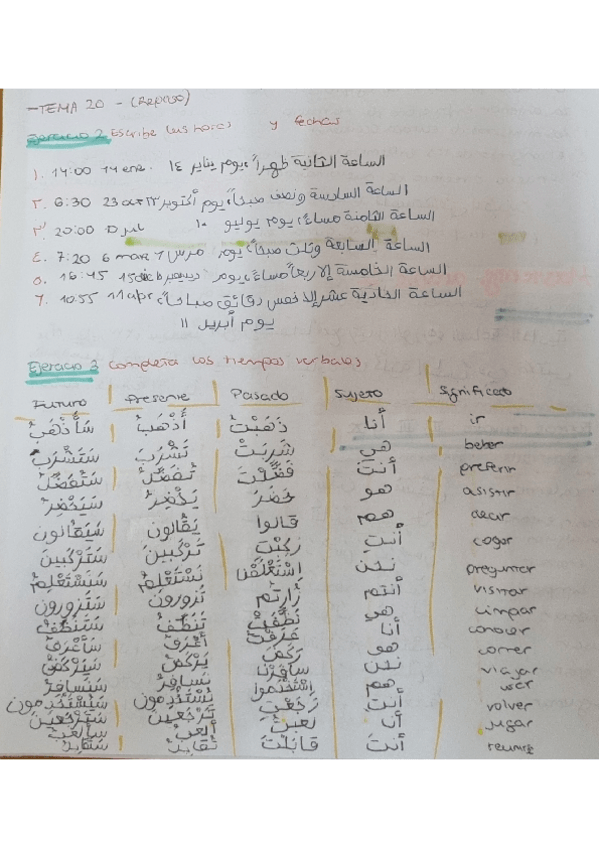 -TEMA 20 - (Repaso)
Ejercicio 2 Escribe las horas y fechas
١. 14:00 14 ene. الساعة الثانية ظهراً، يوم يناير ١٤
٢. 6:30 23 oct الساعة السادسة ونصف صباحاً، يوم أكتوبر ٢٣
٣. 20:00 10 jul الساعة الثامنة مساءً، يوم يوليو ١٠
٤. 7:20 6 mars الساعة السابعة وثلث صباحاً، يوم ٦ مرس
٥. 16:45 15 dic الساعة الخامسة إلا ربعاً مساءً، يوم ديسمبر
٦. 10:55 11 abr الساعة الحادية عشر إلا خمس دقائق صباحاً،
يوم أبريل ١١
Ejercicio 3 completa los tiempos verbales
Futuro Presente Pasado Sujeto Significado
سَأَذْهَبُ أَذْهَبُ ذَهَبْتُ أنا ir
سَتَشْرَبُ تَشْرَبُ شَرِبَتْ هي beber
سَتُفَضِّلُ تُفَضِّلُ فَضَّلْتَ أنتَ preferir
سَيَحْضُرُ يَحْضُرُ حَضَرَ هو asistir
سَيَقالون يَقالون قالوا هم decir
سَتَرْكَبينَ تَرْكَبينَ رَكِبْتِ أنتِ coger
سَنَسْتَعْلِمُ نَسْتَعْلِمُ اسْتَعْلَمْنا نحن preguntar
سَتَزورون تَزورون زارتم أنتم visitar
سَتُنَظِّفُ تُنَظِّفُ نَظَّفَتْ هي limpiar
سَأَعْرِفُ أَعْرِفُ عَرَفْتُ أنا conocer
سَيَرْكُضُ يَرْكُضُ رَكَضَ هو correr
سَنُسافِرُ نُسافِرُ سافَرْنا نحن viajar
سَيَسْتَخْدِمون يَسْتَخْدِمون اسْتَخْدَموا هم usar
سَتَرْجَعينَ تَرْجَعينَ رَجَعْتِ أنتِ volver
سَأَلْعَبُ أَلْعَبُ لَعِبْتُ أنا jugar
سَتُقابِلُ تُقابِلُ قابَلْتَ أنتَ reunirse